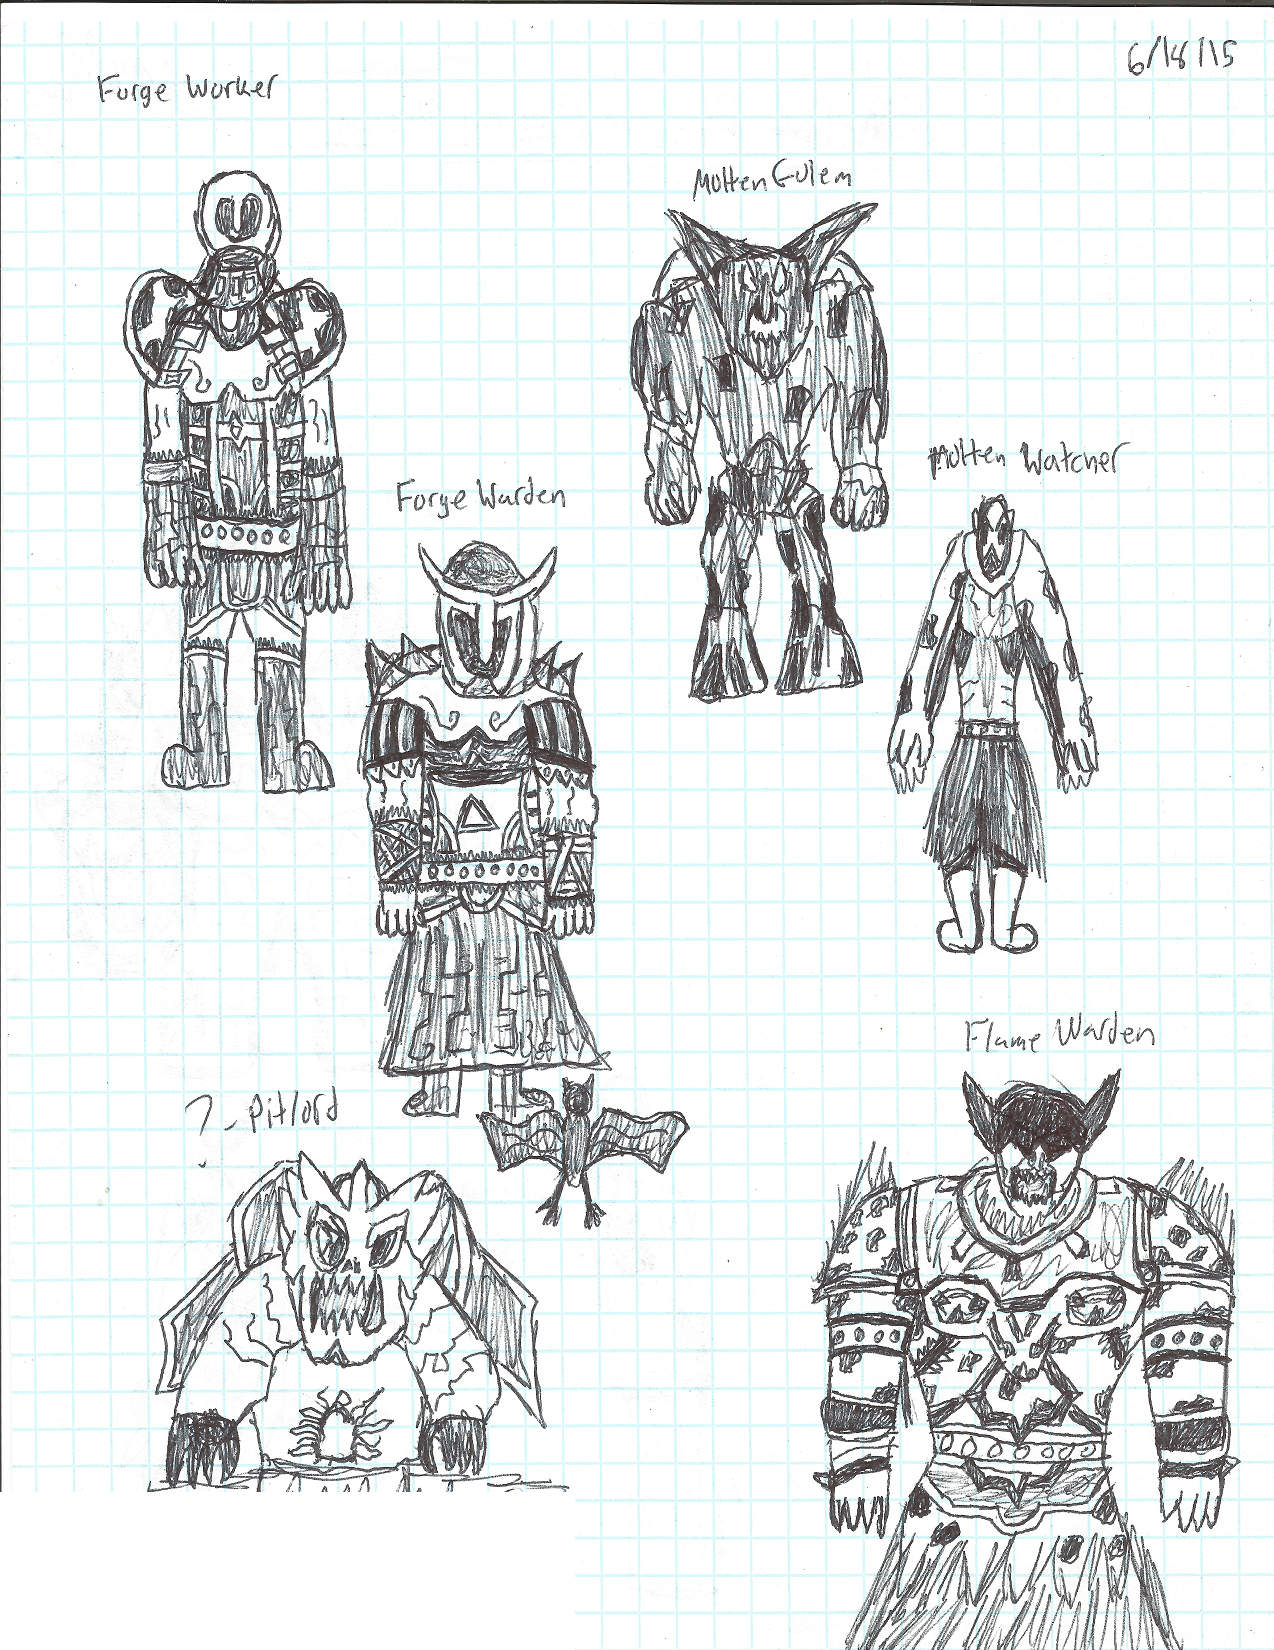 6/18/15
Forge Worker
Molten Golem
Molten Watcher
Forge Warden
Flame Warden
? - Pitlord